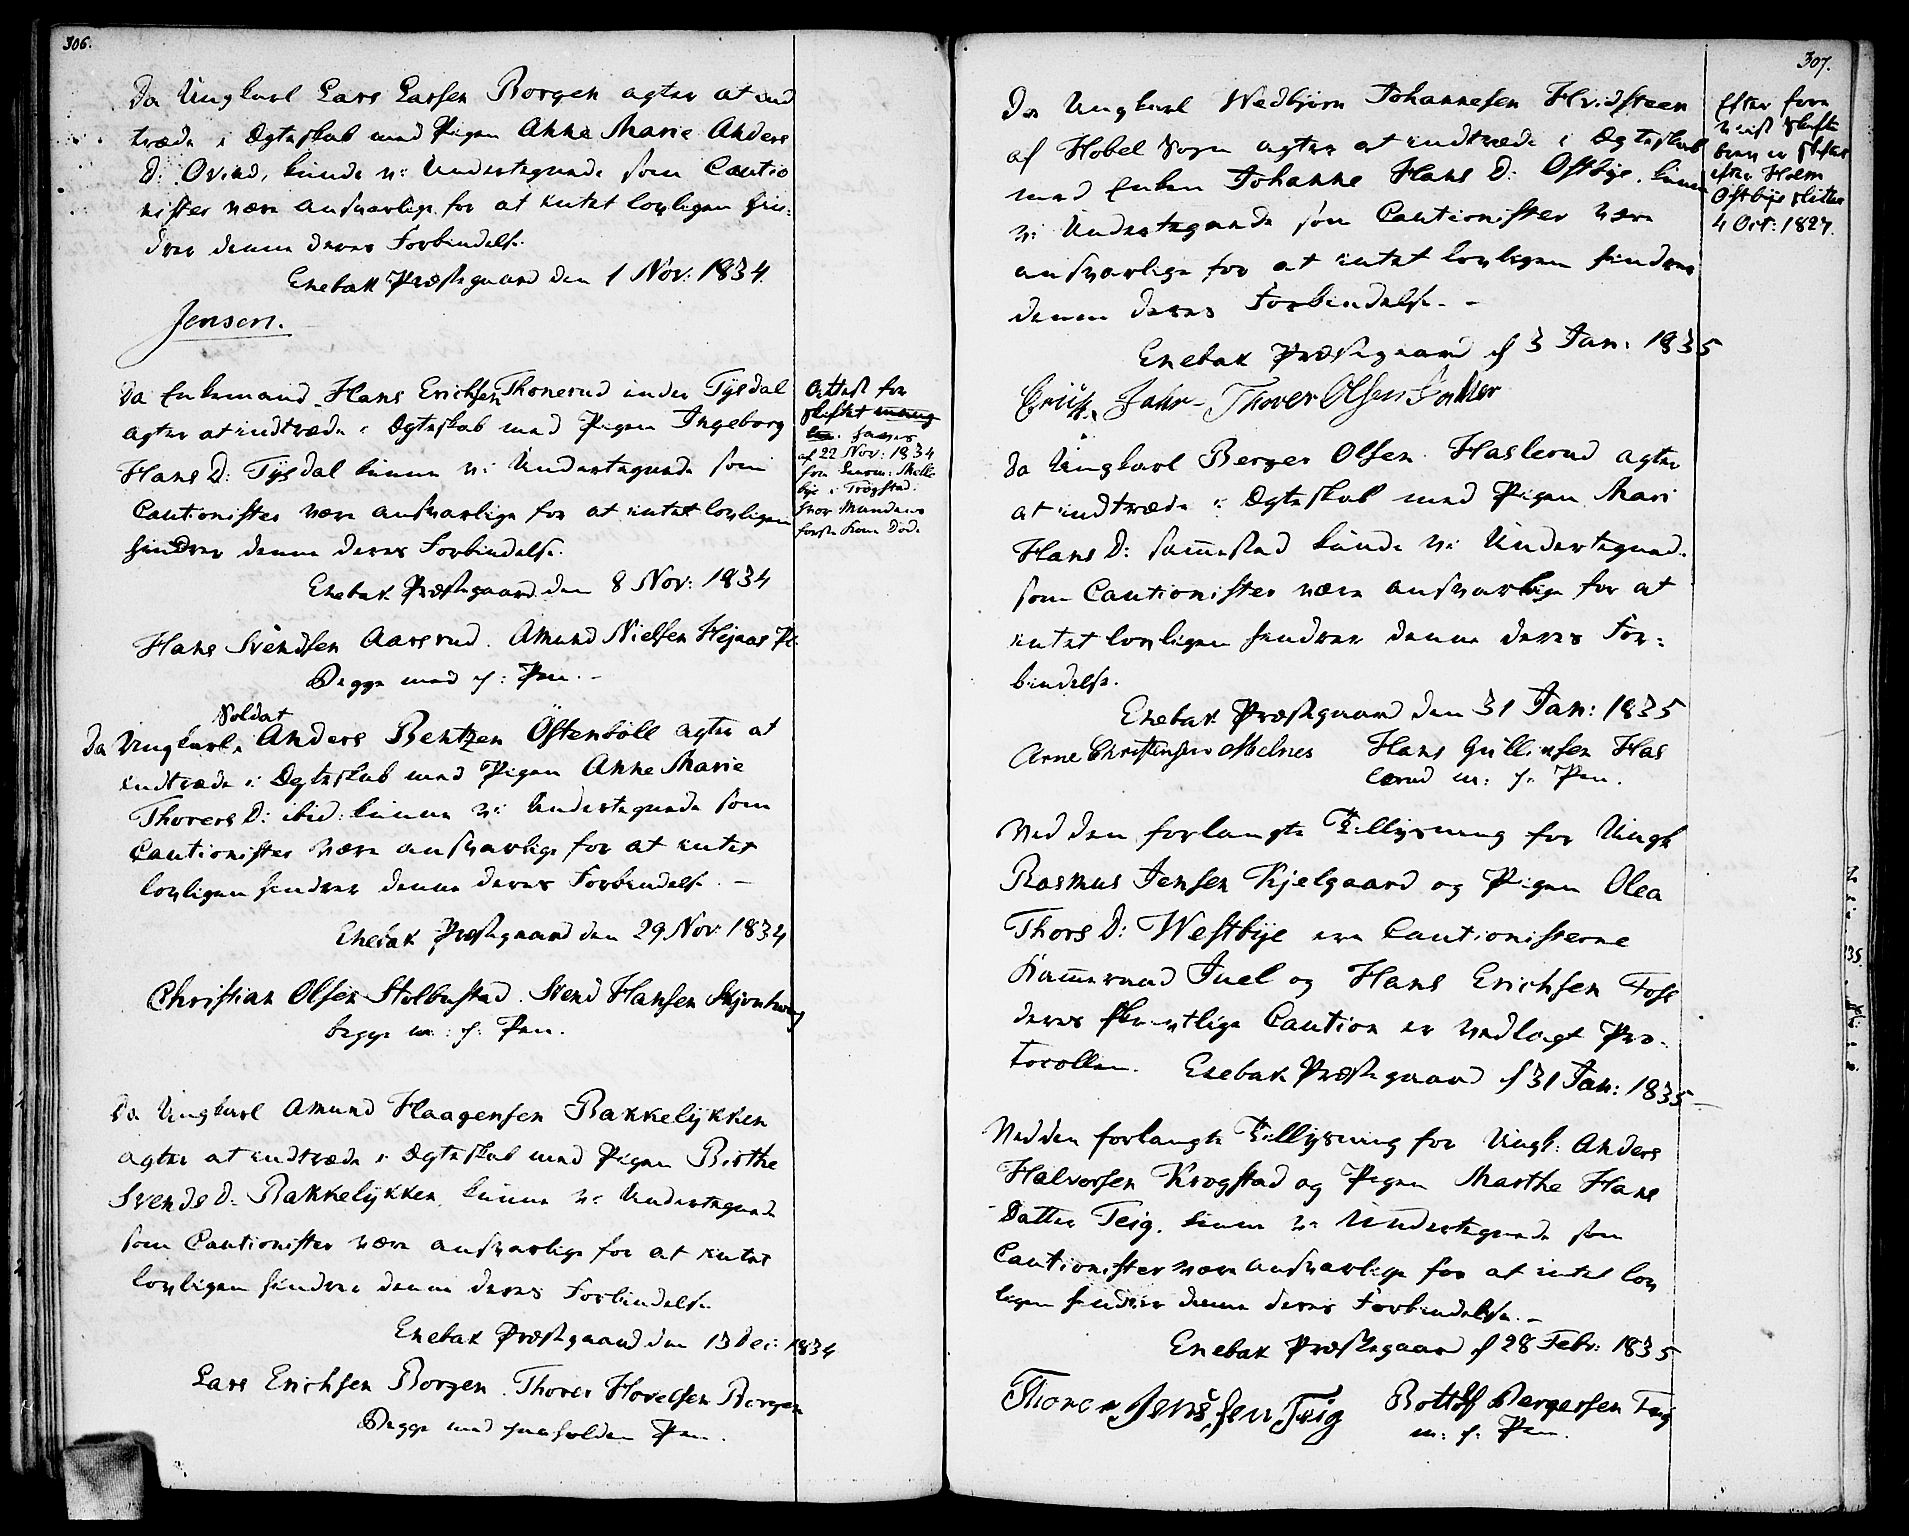 306.
Da Ungkarl Lars Larsen Borgen agter at ind
træde i Ægteskab med Pigen Anne Marie Anders
D: Ovind, kunde vi Undertegnede som Cautio
nister være ansvarlige for at intet lovligen hin:
drer denne deres Forbindelse.
Enebak Præstegaard den 1 Nov: 1834.
Jensen.
Da Enkemand Hans Erichsen Thonerud under Tysdal
agter at indtræde i Ægteskab med Pigen Ingeborg
Hans D: Tysdal kunne vi Undertegnede som
Cautionister være ansvarlige for at intet lovligen
hindrer denne deres Forbindelse.
Enebak Præstegaard den 8 Nov: 1834
Hans Svendsen Aarsrud. Amund Nielsen
Begge med f: Pen.
Attest for
skiftet
haves
af 22 Nov: 1834
fra
bye i Trøgstad.
hvor Mandens
første Kone døde
Soldat
Da Ungkarl Anders Bentzen Östenböll agter at
indtræde i Ægteskab med Pigen Anne Marie
Thorers D: ibid: kunne vi Undertegnede som
Cautionister være ansvarlige for at intet
lovligen hindrer denne deres Forbindelse. –
Enebak Præstegaard den 29 Nov 1834
Christian Olsen Stolbustad. Svend Hansen
begge m: f: Pen.
Da Ungkarl Amund Haagensen Bakkelykken
agter at indtræde i Ægteskab med Pigen Birthe
Svends D: Bakkelykken, kunne vi Undertegnede
som Cautionister være ansvarlige for at intet
lovligen hindrer denne deres Forbindelse
Enebak Præstegaard den 13 Dec: 1834
Lars Erichsen Borgen. Thorer Hovelsen Borgen
Begge med paaholden Pen.
307.
Da Ungkarl Wedbjørn Johannesen Hvidsteen
af Hobel Sogn agter at indtræde i Ægteskab
med Enken Johanne Hans D: Ostbye. kunne
vi Undertegnede som Cautionister være
ansvarlige for at intet lovligen hindrer
denne deres Forbindelse. –
Enebak Præstegaard d 3 Jan: 1835
Jahr – Thorer Olsen
Efter fore
viist Skifte
brev er skiftet
efter Holm
Ostbye
4 Oct: 1827.
Da Ungkarl Berger Olsen Haslerud agter
at indtræde i Ægteskab med Pigen Mari
Hans D: sammestad kunde vi Undertegnede
som Cautionister være ansvarlige for at
intet lovligen hindrer denne deres For:
bindelse.
Enebak Præstegaard den 31 Jan: 1835
Arne Christensen Hans Gulliksen Has
lerud m: f: Pen.
Ved den forlangte Tillysning for Ungk
Rasmus Jensen Kjelgaard og Pigen Olea
Thors D: Westbye ere Cautionisterne
Kammerraad Juel og Hans Erichsen Foss
deres skrivtlige Caution er vedlagt Pro-
tocollen. Enebak Præstegaard d 31 Jan: 1835 –
Ved den forlangte Tillysning for Ungk: Anders
Halvorsen Krogstad og Pigen Marthe Hans
Datter Teig. kunne vi Undertegnede som
Cautionister være ansvarlige for at intet lov
ligen hindrer denne deres Forbindelse. –
Enebak Præstegaard d 28 Febr: 1835
Thorer Jensen Teig Bottolf Bergersen Teig
m: f: Pen.